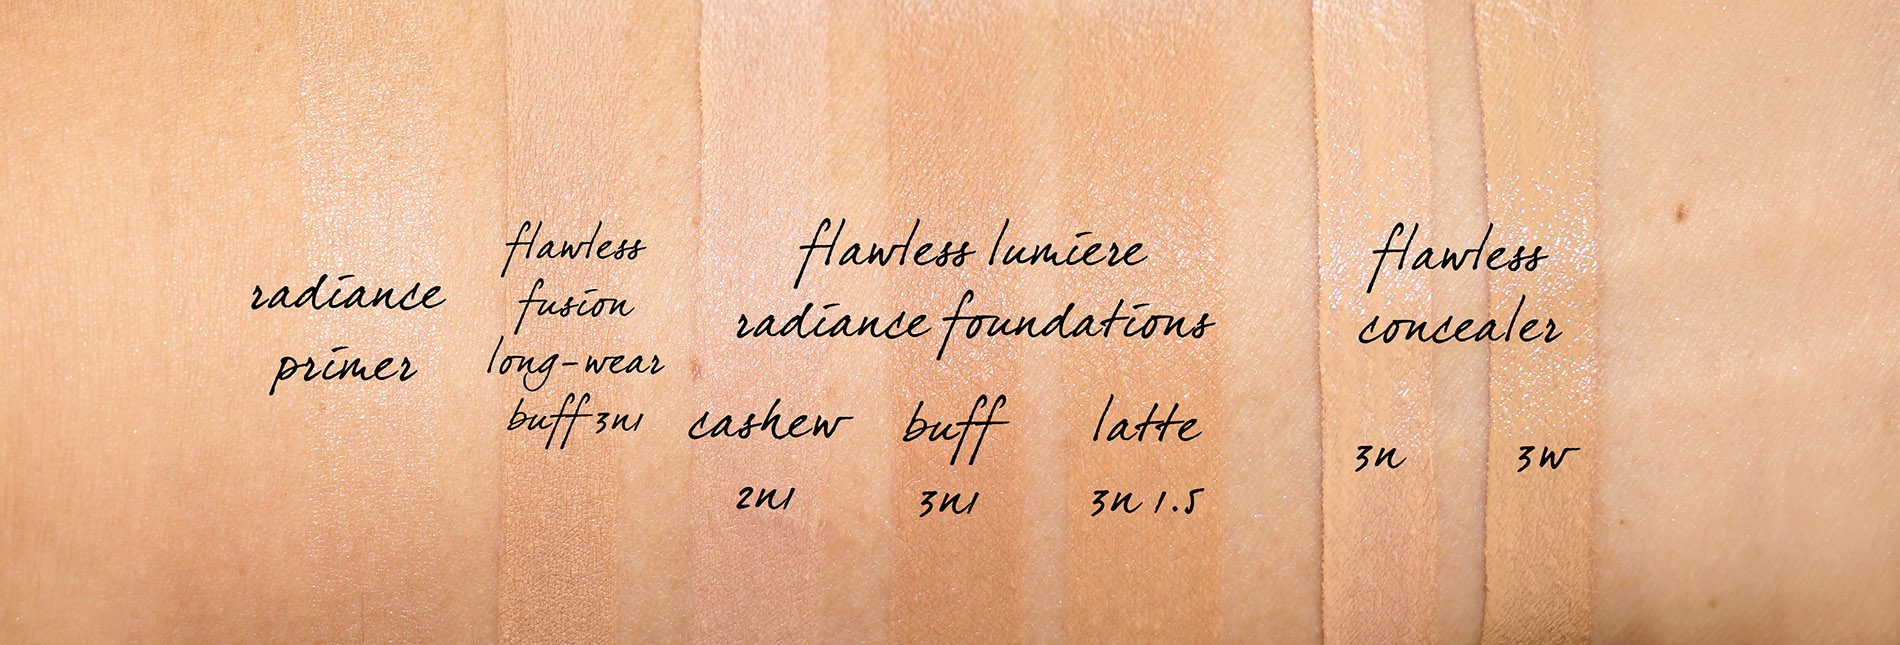 radiance
primer
flawless
fusion
long-wear
buff 3n1
flawless lumiere
radiance foundations
cashew
2n1
buff
3n1
latte
3n 1.5
flawless
concealer
3n
3w